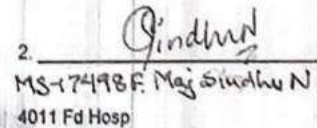 Sindhu N
2.
MS-17498F. Maj Sindhu N
4011 Fd Hosp